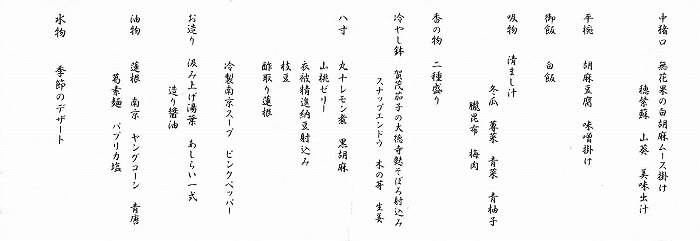 中猪口　無花果の白胡麻ムース掛け
穂紫蘇　山葵　美味出汁
平椀　胡麻豆腐　味噌掛け
御飯　白飯
吸物　清まし汁
冬瓜　蓴菜　青菜　青柚子
朧昆布　梅肉
香の物　二種盛り
冷やし鉢　賀茂茄子の大徳寺麩そぼろ射込み
スナップエンドウ　木の芽　生姜
八寸　丸十レモン煮　黒胡麻
山桃ゼリー
衣被精進納豆射込み
枝豆
酢取り蓮根
冷製南京スープ　ピンクペッパー
お造り　汲み上げ湯葉　あしらい一式
造り醤油
油物　蓮根　南京　ヤングコーン　青唐
葛素麺　パプリカ塩
水物　季節のデザート